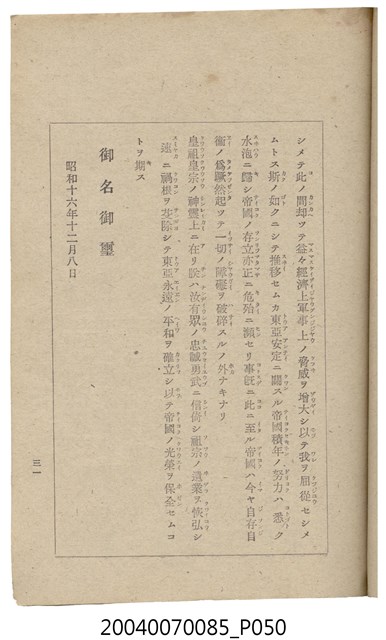 シメテ此ノ間却ツテ益々經濟上軍事上ノ脅威ヲ增大シ以テ我ヲ屈從セシメ
ムトス斯ノ如クニシテ推移セムカ東亞安定ニ關スル帝國積年ノ努力ハ悉ク
水泡ニ歸シ帝國ノ存立亦正ニ危殆ニ瀕セリ事既ニ此ニ至ル帝國ハ今ヤ自存自
衞ノ爲蹶然起ツテ一切ノ障礙ヲ破碎スルノ外ナキナリ
皇祖皇宗ノ神靈上ニ在リ朕ハ汝有眾ノ忠誠勇武ニ信倚シ祖宗ノ遺業ヲ恢弘シ
速ニ禍根ヲ芟除シテ東亞永遠ノ平和ヲ確立シ以テ帝國ノ光榮ヲ保全セムコ
トヲ期ス
御名御璽
昭和十六年十二月八日
三一
20040070085_P050